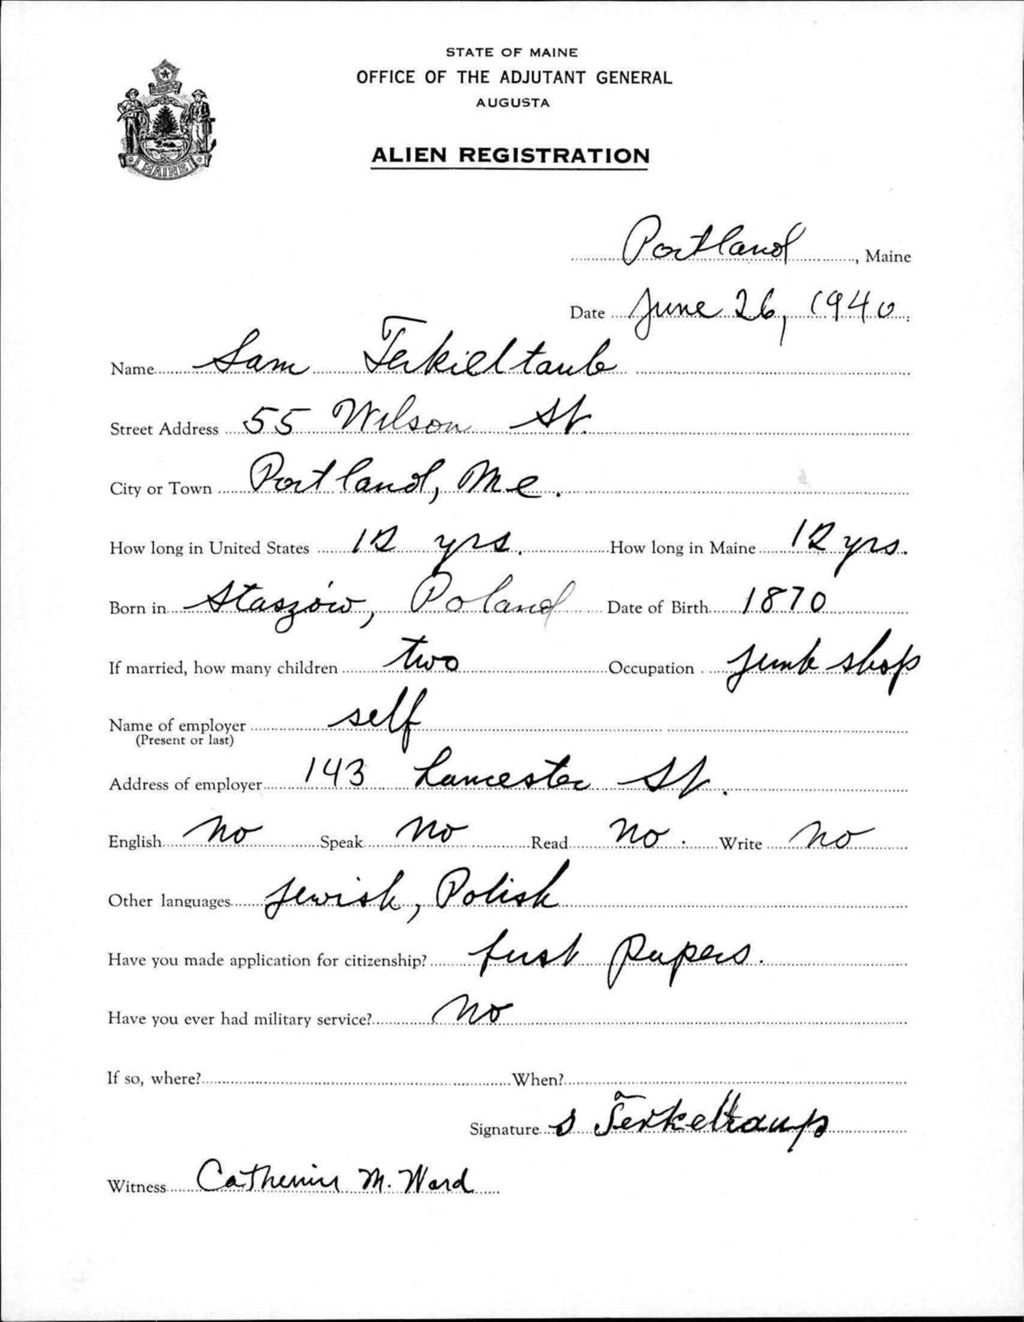 STATE OF MAINE
OFFICE OF THE ADJUTANT GENERAL
AUGUSTA
ALIEN REGISTRATION
MAINE
Portland, Maine
Date June 26, 1940
Name Sam Terkieltaub
Street Address 55 Wilson St.
City or Town Portland, Me.
How long in United States 12 yrs. How long in Maine 12 yrs.
Born in Staszów, Poland Date of Birth 1870
If married, how many children two Occupation junk shop
Name of employer self
(Present or last)
Address of employer 143 Lancester St.
English No Speak No Read No. Write No
Other languages Jewish, Polish
Have you made application for citizenship? first papers.
Have you ever had military service? No
If so, where? When?
Signature S Terkeltaup
Witness Catherine M. Ward